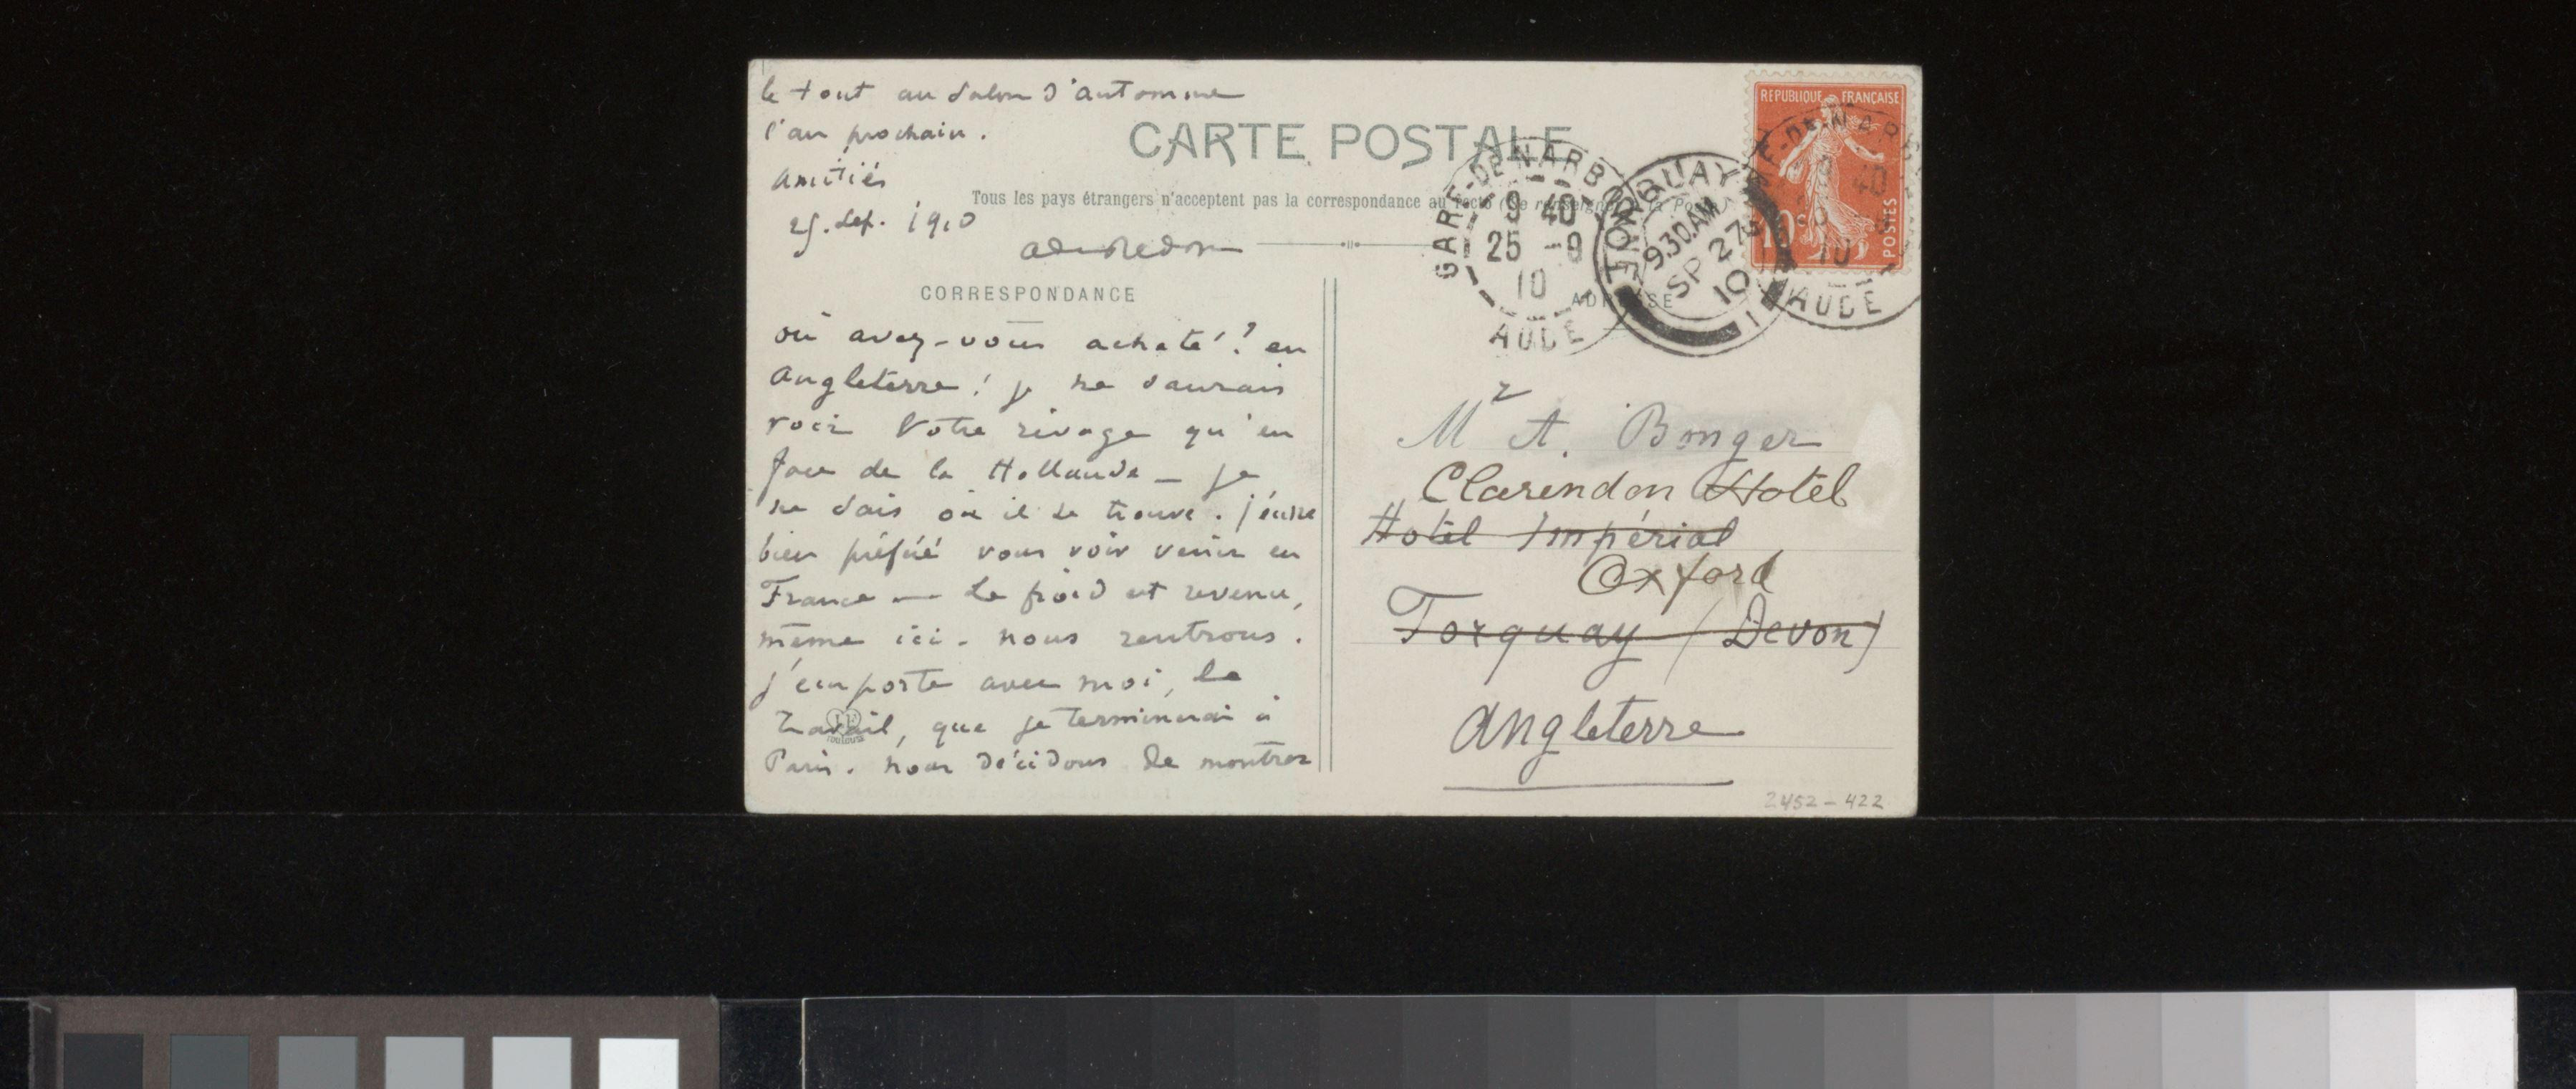 le tout au Salon d'automne
l'an prochain.
Amitiés
25. Sep. 1910
CARTE POSTALE
Tous les pays étrangers n'acceptent pas la correspondance au recto (Se renseigner à la Poste)
CORRESPONDANCE
où avez-vous acheté? en
Angleterre! je ne saurais
voir Votre rivage qu'en
face de la Hollande — je
ne sais où il se trouve. j'eusse
bien préféré vous voir venir en
France — Le froid est revenu,
même ici. nous rentrons.
j'emporte avec moi, le
travail, que je terminerai à
Paris. nous décidons de montrer
REPUBLIQUE FRANÇAISE
10c
POSTES
GARE-DE-NARBONNE
9 40
25 -9
10
AUDE
TORQUAY
9.30.AM
SP 27
10
1
AUDE
ADRESSE
Mr A. Bonger
Clarendon Hotel
Hotel Impérial
Oxford
Torquay (Devon)
Angleterre
2452-422